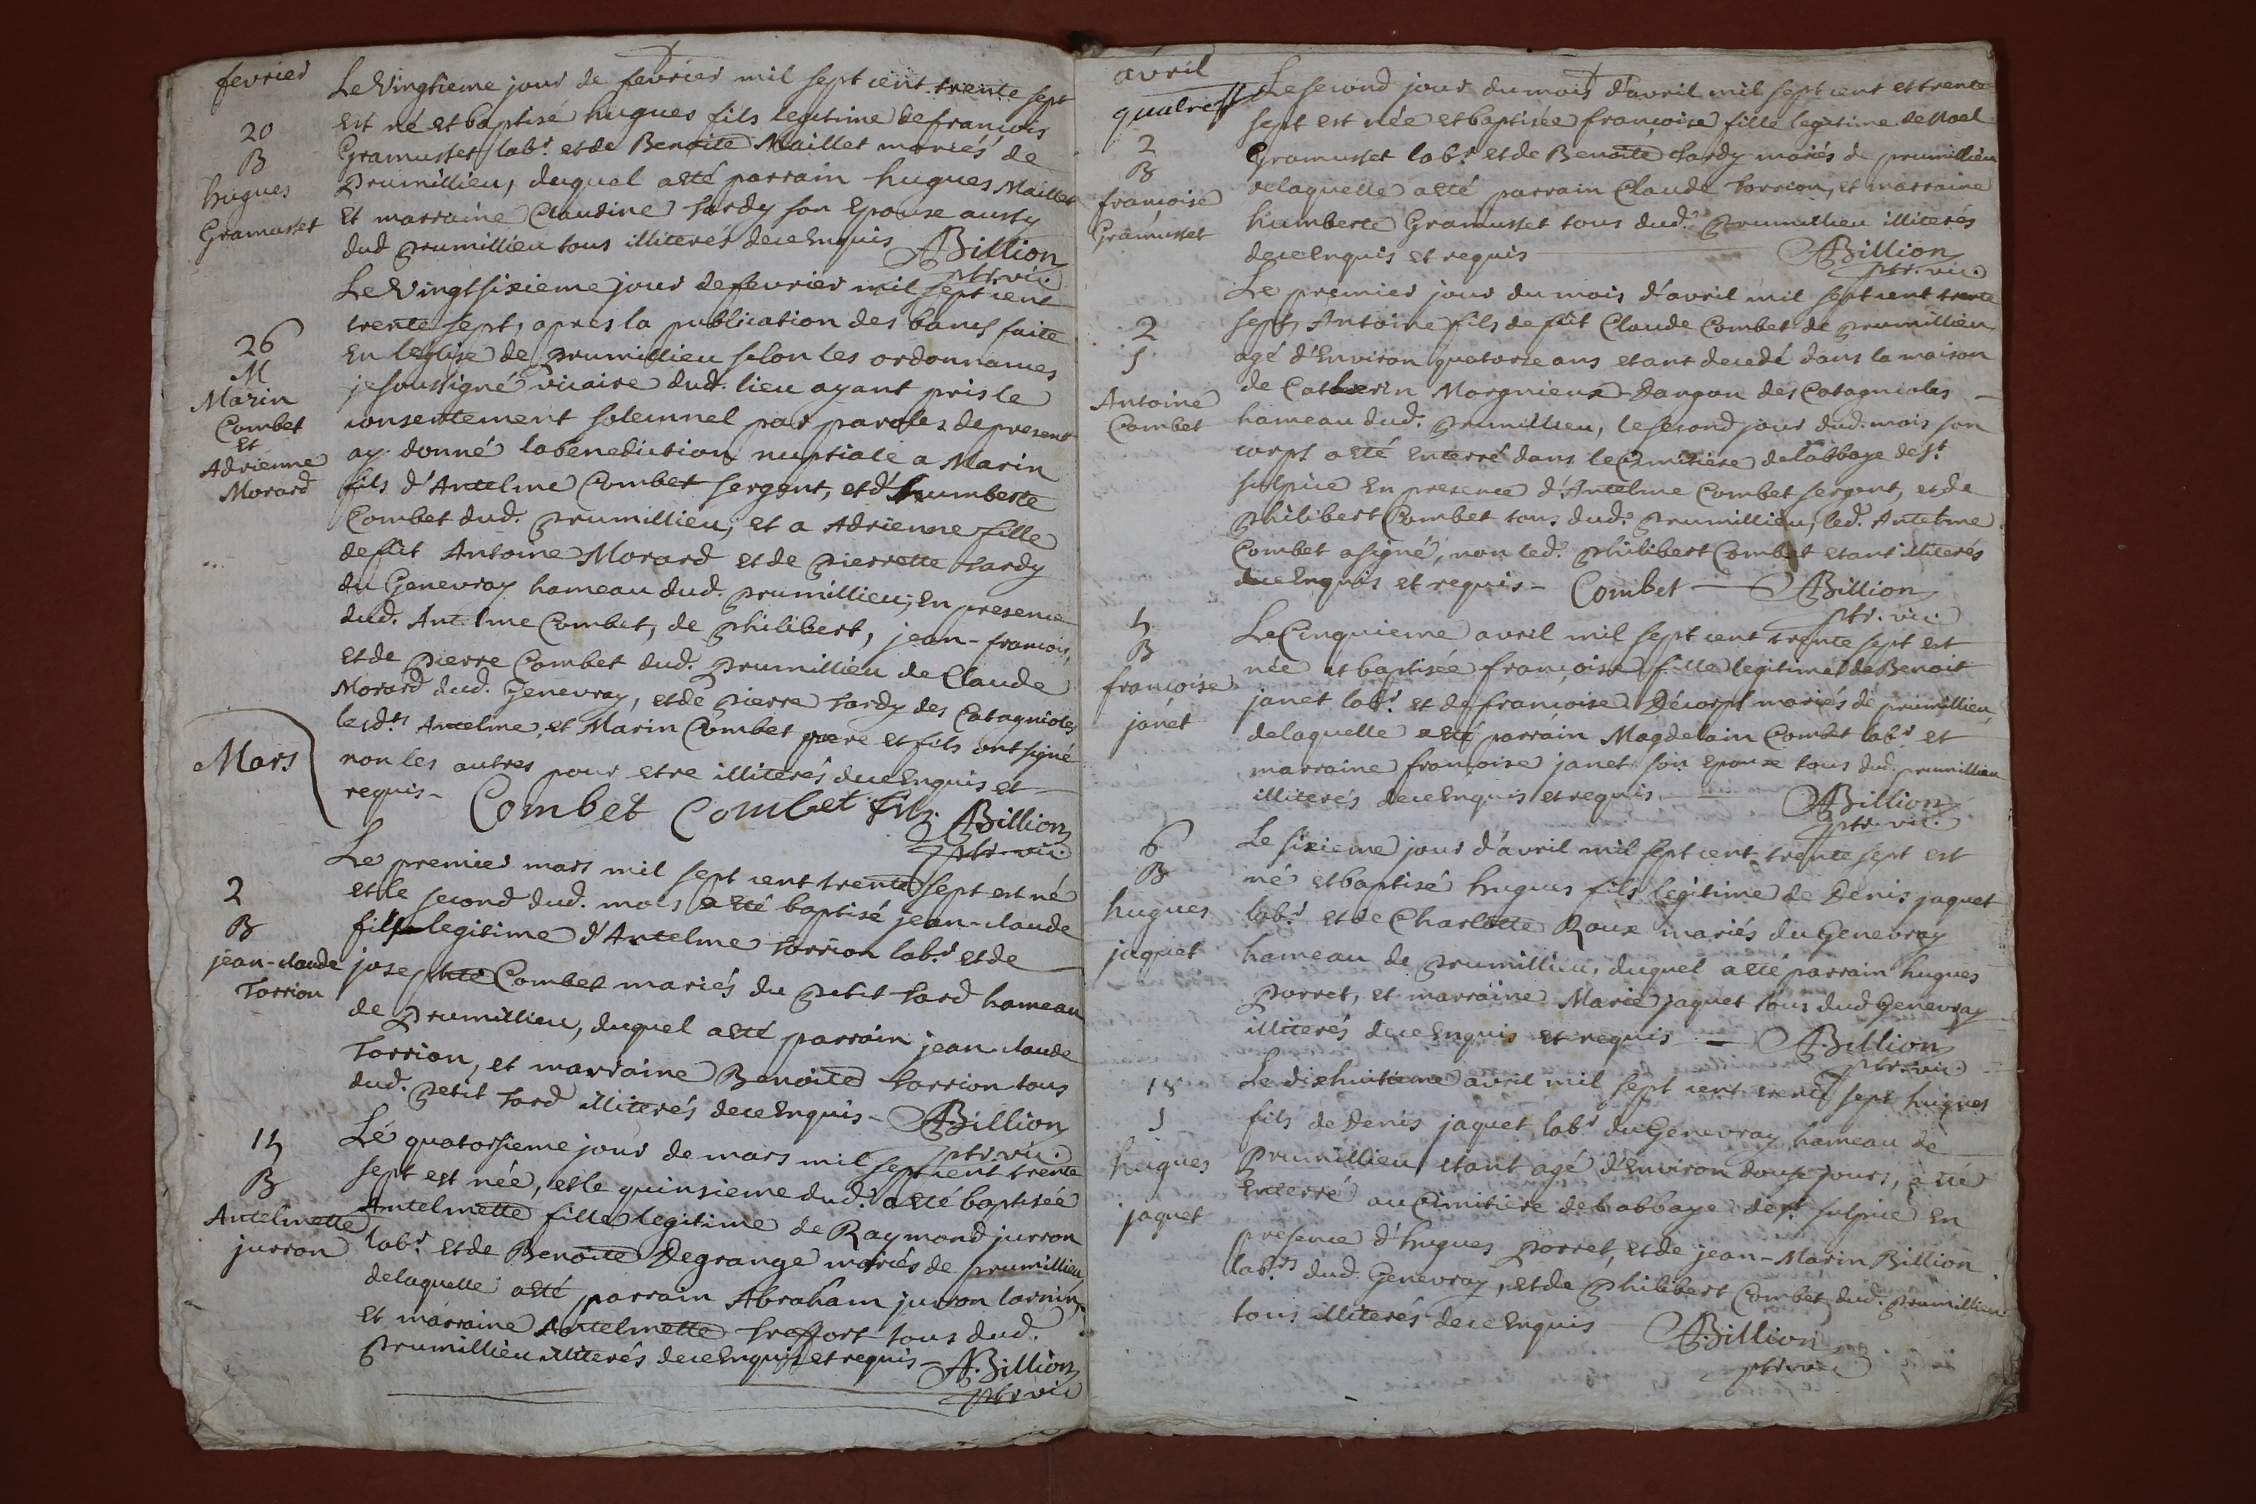 fevrier
Le Vingtieme jour de fevrier mil sept cent trente sept
20
est né et baptisé hugues fils legitime de françois
B
Gramusset lab.r et de Benoite Maillet mariés de
hugues
Prumillieu, duquel a eté parrain hugues Maillet
Gramusset
et marraine Claudine tardy son Epouse aussy
dud Prumillieu tous illiterés de ce Enquis ABillion
ptr. vic.
Le Vingt sixieme jour de fevrier mil sept cent
trente sept, apres la publication des bancs faite
26
En leglise de Prumillieu selon les ordonnances
M
je soussigné vicaire dud. lieu ayant pris le
Marin
consentement solemnel par paroles de present
Combet
ay donné la benediction nuptiale a Marin
et
Adrienne
fils d'Antelme Combet sergent, et d'humberte
Morard
Combet dud. Prumillieu; et a Adrienne fille
de fût Antoine Morard et de Pierrette tardy
du Genevray hameau dud. Prumillieu; En presence
dud. Antelme Combet, de Philibert, jean-francois,
et de Pierre Combet dud. Prumillieu de Claude
Morard dud. Genevray, et de Pierre tardy des Catagnioles
lesd.ts Antelme, et Marin Combet pere et fils ont signé
Mars
non les autres pour etre illiterés de ce Enquis et
requis - Combet Combet fils. ABillion
ptr. vic.
Le premier mars mil sept cent trente sept est né
2
et le second dud. mois a eté baptisé jean-claude
B
fils legitime d'Antelme torrion lab.r et de
jean-claude
josephte Combet mariés du Petit tard hameau
Torrion
de Prumillieu, duquel a eté parrain jean claude
torrion, et marraine Benoite torrion tous
dud. Petit tard illiterés de ce Enquis - ABillion
ptr. vic.
Le quatorsieme jour de mars mil sept cent trente
15
sept est née, et le quinsieme dud. a eté baptisée
B
Antelmette fille legitime de Raymond jurron
Antelmette
jurron
lab.r et de Benoite Degrange mariés de Prumillieu,
de laquelle a eté parrain Abraham jurron
et marraine Antelmette traffort tous dud.
Prumillieu illiterés de ce Enquis et requis - ABillion
ptr vic
avril
Le second jour du mois d'avril mil sept cent et trente
sept est née et baptisée françoise fille legitime de Noel
2
Gramusset lab.r et de Benoite tardy mariés de prumillieu
B
de laquelle a eté parrain Claude torrion, et marraine
françoise
Gramusset
humberte Gramusset tous dud. Prumillieu illiterés
de ce Enquis et requis ABillion
ptr. vic.
Le premier jour du mois d'avril mil sept cent trente
2
sept, Antoine fils de fût Claude Combet de Prumillieu,
S
agé d'Environ quatorse ans etant decedé dans la maison
Antoine
Combet
de Catherin Morgnieux Dangon des Catagnioles
hameau dud. Prumillieu, le second jour dud. mois son
corps a eté Enterré dans le Cimitiere de l'abbaye de S.t
sulpice En presence d'Antelme Combet sergent, et de
Philibert Combet tous dud. Prumillieu, led. Antelme
Combet a signé, non led. Philibert Combet etant illiterés
de ce Enquis et requis - Combet - ABillion
ptr. vic.
5
Le Cinquieme avril mil sept cent trente sept est
B
née et baptisée françoise fille legitime de Benoit
françoise
janet
janet lab.r et de francoise Décorps mariés de prumillieu,
de laquelle a eté parrain Magdelain Combet lab.r et
marraine françoise janet son Epouse tous dud. prumillieu
illiterés de ce Enquis et requis - ABillion
ptr. vic.
6
Le sixieme jour d'avril mil sept cent trente sept est
B
né et baptisé hugues fils legitime de Denis jaquet
hugues
lab.r et de Charlotte Roux mariés du Genevray
jaquet
hameau de Prumillieu, duquel a eté parrain hugues
Porret, et marraine Marie jaquet tous dud Genevray
illiterés de ce Enquis et requis - ABillion
ptr. vic
18
Le dixhuitieme avril mil sept cent trente sept hugues
S
fils de Denis jaquet lab.r du Genevray hameau de
hugues
Prumillieu etant agé d'Environ douse jours, a eté
jaquet
Enterré au Cimitiere de l'abbaye de S.t sulpice En
presence d'hugues Porret, et de jean-Marin Billion
lab.rs dud. Genevray, et de Philibert Combet dud. Prumillieu
tous illiterés de ce Enquis ABillion
ptr vic